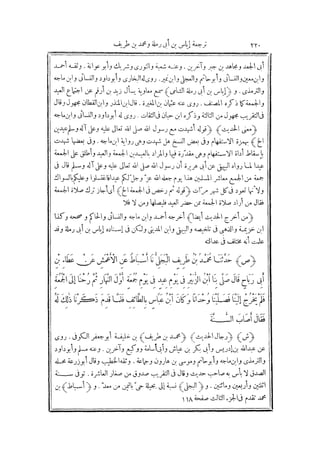 ٢٢٠ ترجمة إياس بن أبى رملة ومحمد بن طريف
أبى الجعد ومجاهد بن جبر وآخرين. وعنه شعبة والثورى وشريك وأبو عوانة. وثقه أحمد
وابن معين والنسائى وأبو حاتم والعجلى وابن نمير. روى له البخارى وأبو داود والنسائى وابن ماجه
والترمذى. و (إياس بن أبى رملة الشامى) سمع معاوية يسأل زيد بن أرقم عن اجتماع العيد
والجمعة كما ذكره المصنف. روى عنه عثمان بن المغيرة. قال ابن المنذر وابن القطان مجهول وقال
فى التقريب مجهول من الثالثة وذكره ابن حبان فى الثقات. روى له أبو داود والنسائى وابن ماجه
(معنى الحديث) (قوله أشهدت مع رسول الله صلى الله تعالى عليه وعلى آله وسلم عيدين
الخ) بهمزة الاستفهام وفى بعض النسخ هل شهدت وهى رواية ابن ماجه. وفى بعضها شهدت
بإسقاط أداة الاستفهام وهى مقدرة فيها والمراد بالعيدين الجمعة والعيد وأطلق على الجمعة
عيدا لما رواه البيهقى عن أبى هريرة أن رسول الله صلى الله تعالى عليه وعلى آله وسلم قال فى
جمعة من الجمع معاشر المسلمين هذا يوم جعله الله عز وجل لكم عيدا فاغتسلوا وعليكم بالسواك
ولأنها تعود فى كل شهر مرات (قوله ثم رخص فى الجمعة الخ) أى أجاز ترك صلاة الجمعة
فقال من أراد صلاة الجمعة ممن حضر العيد فليصلها ومن لا فلا
(من أخرج الحديث أيضا) أخرجه أحمد وابن ماجه والنسائى والحاكم وصححه وكذا
ابن خزيمة والذهبى فى تلخيصه والبيهقى وابن المدينى ولكن فى إسناده إياس بن أبى رملة وقد
علمت أنه مختلف فى عدالته
(ص) حَدَّثَنَا مُحَمَّدُ بْنُ طَرِيفٍ الْبَجَلِىُّ نَا أَسْبَاطٌ عَنِ الْأَعْمَشِ عَنْ عَطَاءِ بْنِ
أَبِى رَبَاحٍ قَالَ صَلَّى بِنَا ابْنُ الزُّبَيْرِ فِى يَوْمِ عِيدٍ فِى يَوْمِ جُمُعَةٍ أَوَّلَ النَّهَارِ ثُمَّ رُحْنَا إِلَى الْجُمُعَةِ
فَلَمْ يَخْرُجْ إِلَيْنَا فَصَلَّيْنَا وُحْدَانًا وَكَانَ ابْنُ عَبَّاسٍ بِالطَّائِفِ فَلَمَّا قَدِمَ ذَكَرْنَا ذَلِكَ لَهُ
فَقَالَ أَصَابَ السُّنَّةَ
(ش) (رجال الحديث) (محمد بن طريف) بن خليفة أبو جعفر الكوفى. روى
عن عبدالله بن إدريس وأبى بكر بن عياش وأبى أسامة ووكيع وآخرين. وعنه مسلم وأبو داود
والترمذى وابن ماجه وأبو حاتم وموسى بن هارون وجماعة. وثقه الخطيب وقال أبو زرعة محله
الصدق لا بأس به صاحب حديث وقال فى التقريب صدوق من صغار العاشرة. توفى سنة
اثنتين وأربعين ومائتين. و (البجلى) نسبة إلى بجيلة حى باليمن من معد. و (أسباط) بن
محمد تقدم فى الجزء الثالث صفحة ١١٨